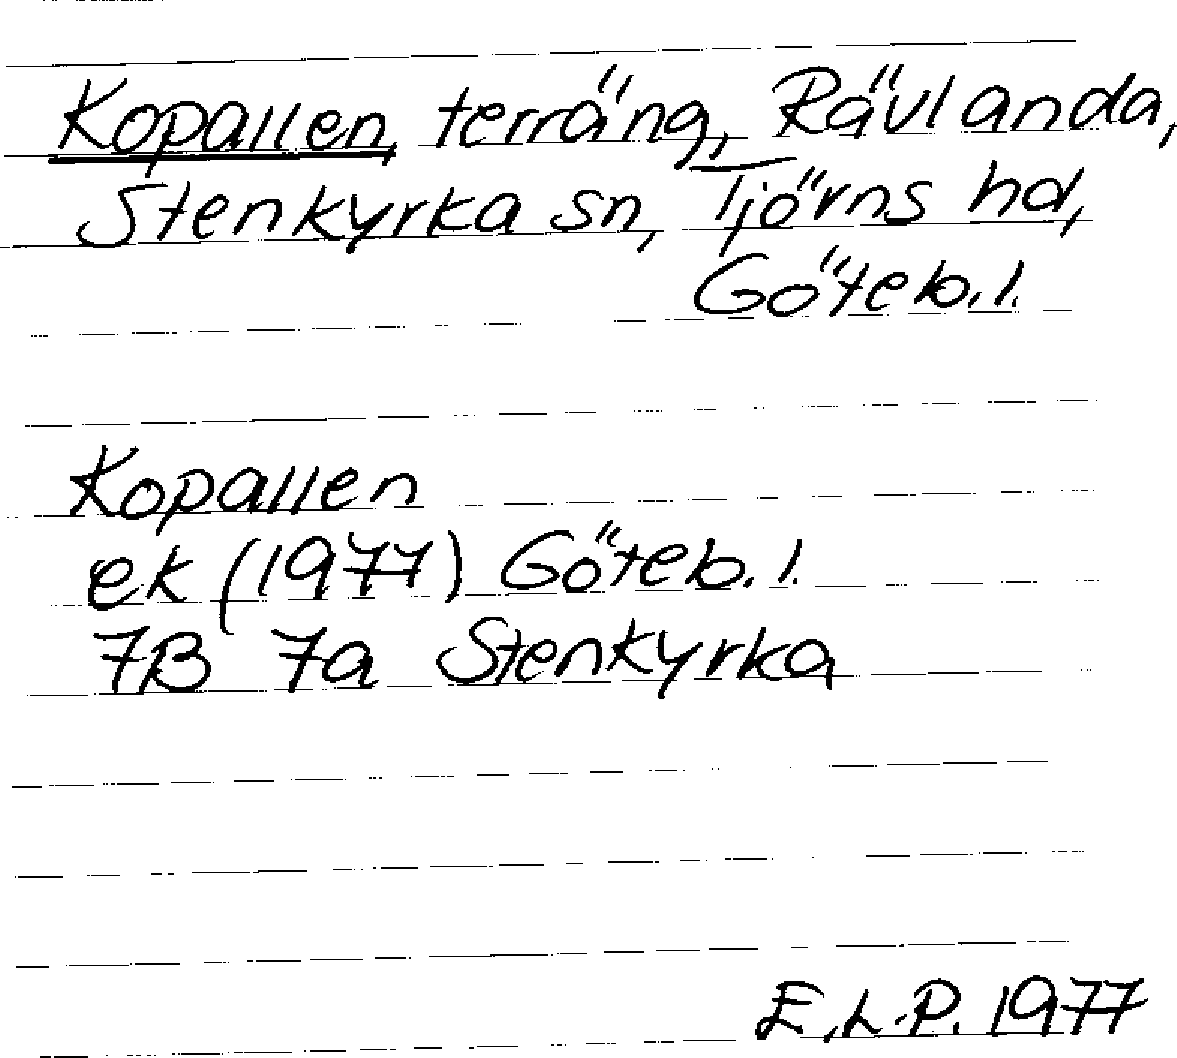 Kopallen, terräng, Rävlanda,
Stenkyrka sn, Tjörns hd,
Göteb. l.
Kopallen
ek (1977) Göteb. l.
7B 7a Stenkyrka
E.L.P. 1977